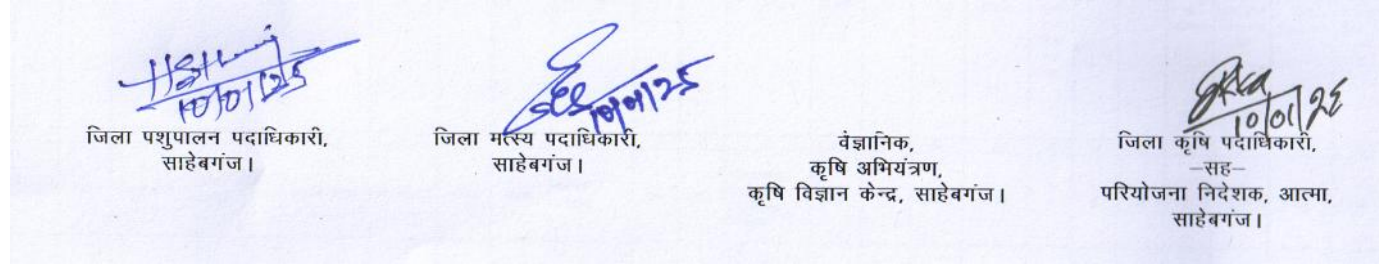 10/01/25
जिला पशुपालन पदाधिकारी,
साहेबगंज।
10/01/25
जिला मत्स्य पदाधिकारी,
साहेबगंज।
वैज्ञानिक,
कृषि अभियंत्रण,
कृषि विज्ञान केन्द्र, साहेबगंज।
10/01/25
जिला कृषि पदाधिकारी,
–सह–
परियोजना निदेशक, आत्मा,
साहेबगंज।